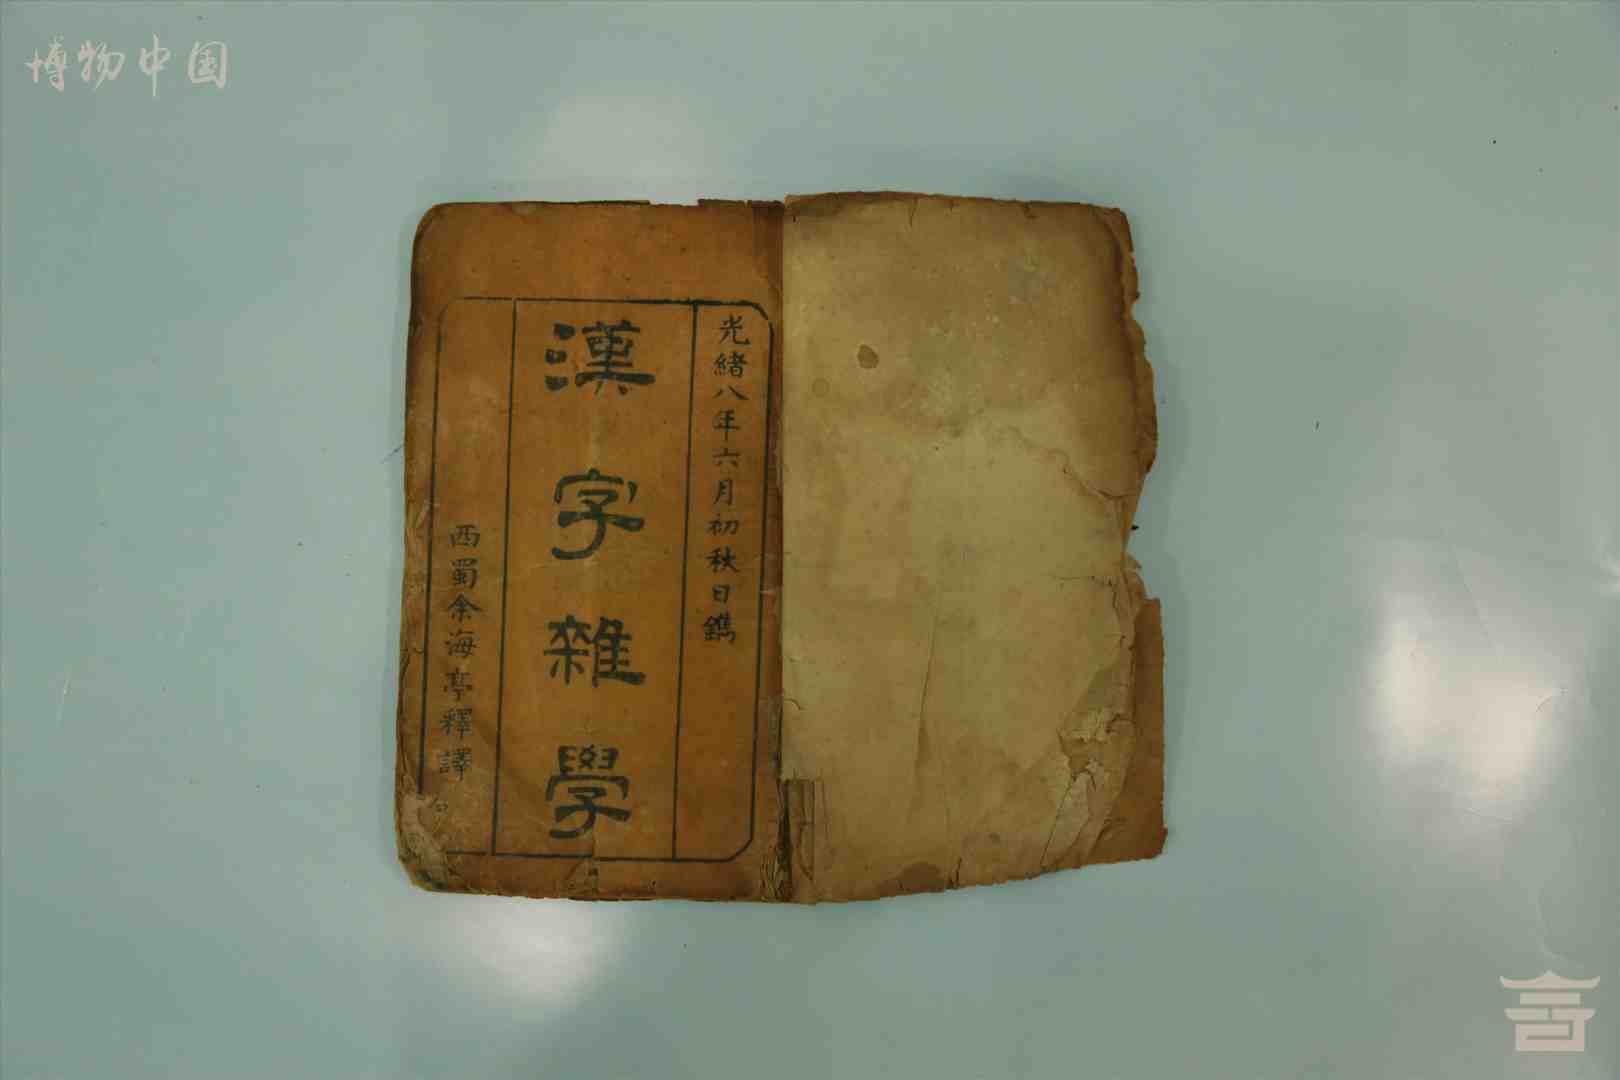 博物中国
光緒八年六月初秋日鐫
漢字雜學
西蜀余海亭釋譯